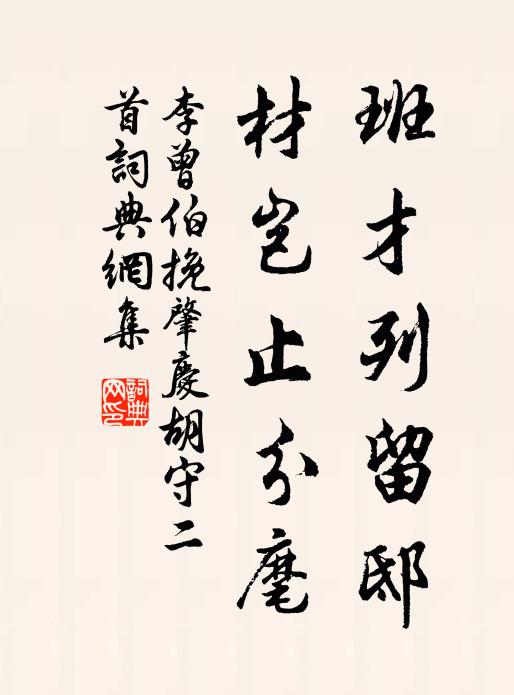 班才列留邸
材岂止分麾
李曾伯挽肇慶胡守二
首詞典網集
詞典
网印